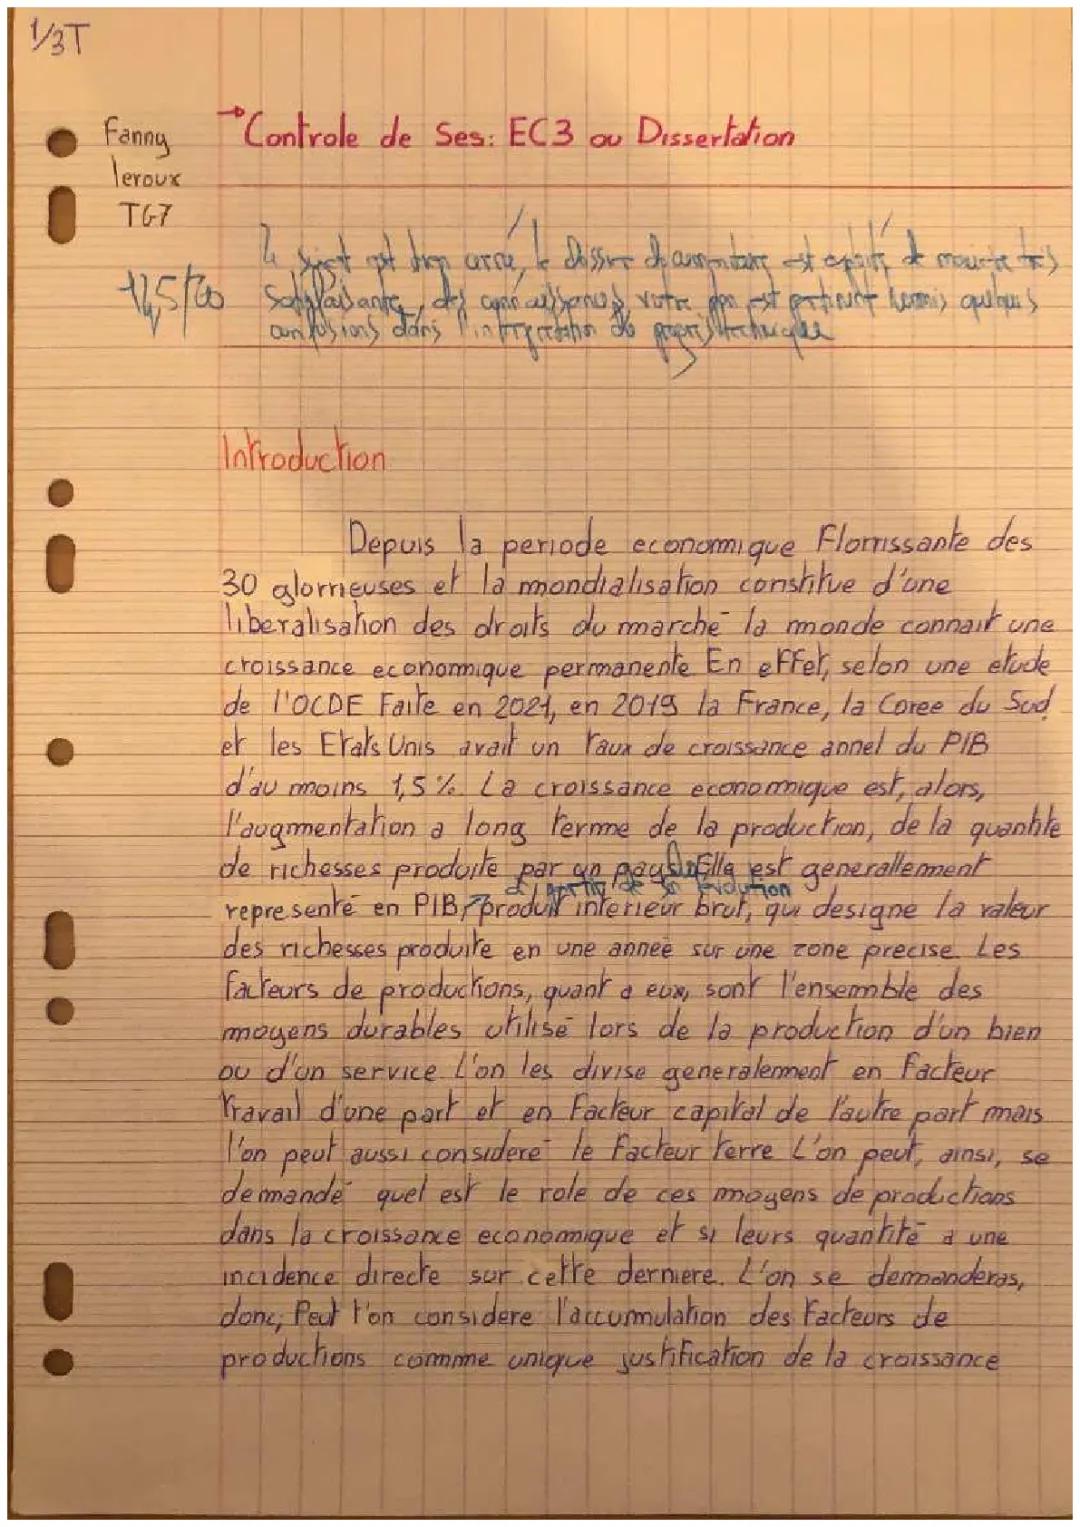 1/3T
Fanny
leroux
TG7
→Controle de Ses: EC3 ou Dissertation
14,5/20
Le sujet est bien cerné, le dossier documentaire est exploité de manière très
satisfaisante, des connaissances, votre plan est pertinent hormis quelques
confusions dans l'interprétation du progrès technique
Introduction
Depuis la periode economique Florrissante des
30 glorrieuses et la mondialisation constitue d'une
liberalisation des droits du marché la monde connait une
croissance economique permanente En eFFet, selon une etude
de l'OCDE Faite en 2021, en 2019 la France, la Coree du Sud
et les Etats Unis avait un taux de croissance annel du PIB
d'au moins 1,5%. La croissance economique est, alors,
l'augmentation a long terme de la production, de la quantite
de richesses produite par un pays Elle est generallement
à partir de son évolution
representé en PIB, produit interieur brut, qui designe la valeur
des richesses produite en une anneé sur une zone precise. Les
Facteurs de productions, quant a eux, sont l'ensemble des
moyens durables utilisé lors de la production d'un bien
ou d'un service L'on les divise generalement en Facteur
Travail d'une part et en Facteur capital de l'autre part mais
l'on peut aussi consideré le Facteur terre L'on peut, ainsi, se
demandé quel est le role de ces moyens de productions
dans la croissance economique et si leurs quantité a une
incidence directe sur cette derniere. L'on se demanderas,
donc, Peut t'on considere l'accumulation des Facteurs de
productions comme unique justiFication de la croissance